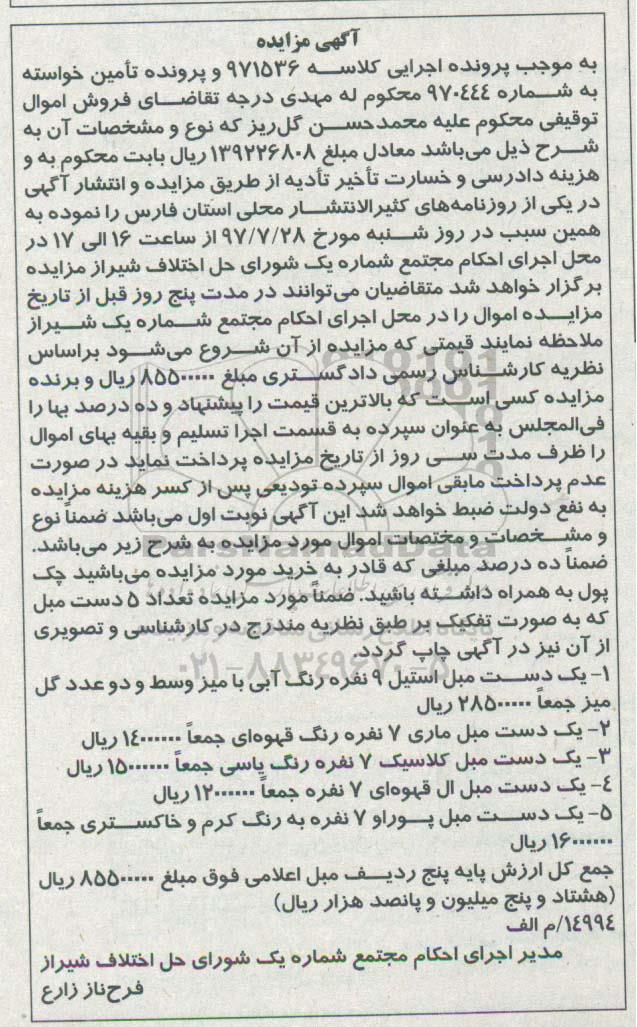 آگهی مزایده
به موجب پرونده اجرایی کلاسه ۹۷۱۵۳۶ و پرونده تأمین خواسته
به شماره ۹۷۰۴۴۴ محکوم له مهدی درجه تقاضای فروش اموال
توقیفی محکوم علیه محمدحسن گل‌ریز که نوع و مشخصات آن به
شرح ذیل می‌باشد معادل مبلغ ۱۳۹۲۲۶۸۰۸ ریال بابت محکوم به و
هزینه دادرسی و خسارت تأخیر تأدیه از طریق مزایده و انتشار آگهی
در یکی از روزنامه‌های کثیرالانتشار محلی استان فارس را نموده به
همین سبب در روز شنبه مورخ ۹۷/۷/۲۸ از ساعت ۱۶ الی ۱۷ در
محل اجرای احکام مجتمع شماره یک شورای حل اختلاف شیراز مزایده
برگزار خواهد شد متقاضیان می‌توانند در مدت پنج روز قبل از تاریخ
مزایده اموال را در محل اجرای احکام مجتمع شماره یک شیراز
ملاحظه نمایند قیمتی که مزایده از آن شروع می‌شود براساس
نظریه کارشناس رسمی دادگستری مبلغ ۸۵۵۰۰۰۰۰ ریال و برنده
مزایده کسی است که بالاترین قیمت را پیشنهاد و ده درصد بها را
فی‌المجلس به عنوان سپرده به قسمت اجرا تسلیم و بقیه بهای اموال
را ظرف مدت سی روز از تاریخ مزایده پرداخت نماید در صورت
عدم پرداخت مابقی اموال سپرده تودیعی پس از کسر هزینه مزایده
به نفع دولت ضبط خواهد شد این آگهی نوبت اول می‌باشد ضمناً نوع
و مشخصات و مختصات اموال مورد مزایده به شرح زیر می‌باشد.
ضمناً ده درصد مبلغی که قادر به خرید مورد مزایده می‌باشید چک
پول به همراه داشته باشید. ضمناً مورد مزایده تعداد ۵ دست مبل
که به صورت تفکیک بر طبق نظریه مندرج در کارشناسی و تصویری
از آن نیز در آگهی چاپ گردد.
۱- یک دست مبل استیل ۹ نفره رنگ آبی با میز وسط و دو عدد گل
میز جمعاً ۲۸۵۰۰۰۰۰ ریال
۲- یک دست مبل ماری ۷ نفره رنگ قهوه‌ای جمعاً ۱۴۰۰۰۰۰۰ ریال
۳- یک دست مبل کلاسیک ۷ نفره رنگ یاسی جمعاً ۱۵۰۰۰۰۰۰ ریال
۴- یک دست مبل ال قهوه‌ای ۷ نفره جمعاً ۱۲۰۰۰۰۰۰ ریال
۵- یک دست مبل پوراو ۷ نفره به رنگ کرم و خاکستری جمعاً
۱۶۰۰۰۰۰۰ ریال
جمع کل ارزش پایه پنج ردیف مبل اعلامی فوق مبلغ ۸۵۵۰۰۰۰۰ ریال
(هشتاد و پنج میلیون و پانصد هزار ریال)
۱۴۹۹۴/م الف
مدیر اجرای احکام مجتمع شماره یک شورای حل اختلاف شیراز
فرح‌ناز زارع
ParsNamadData
۰۲۱-۸۸۳۴۹۶۷۰-۵